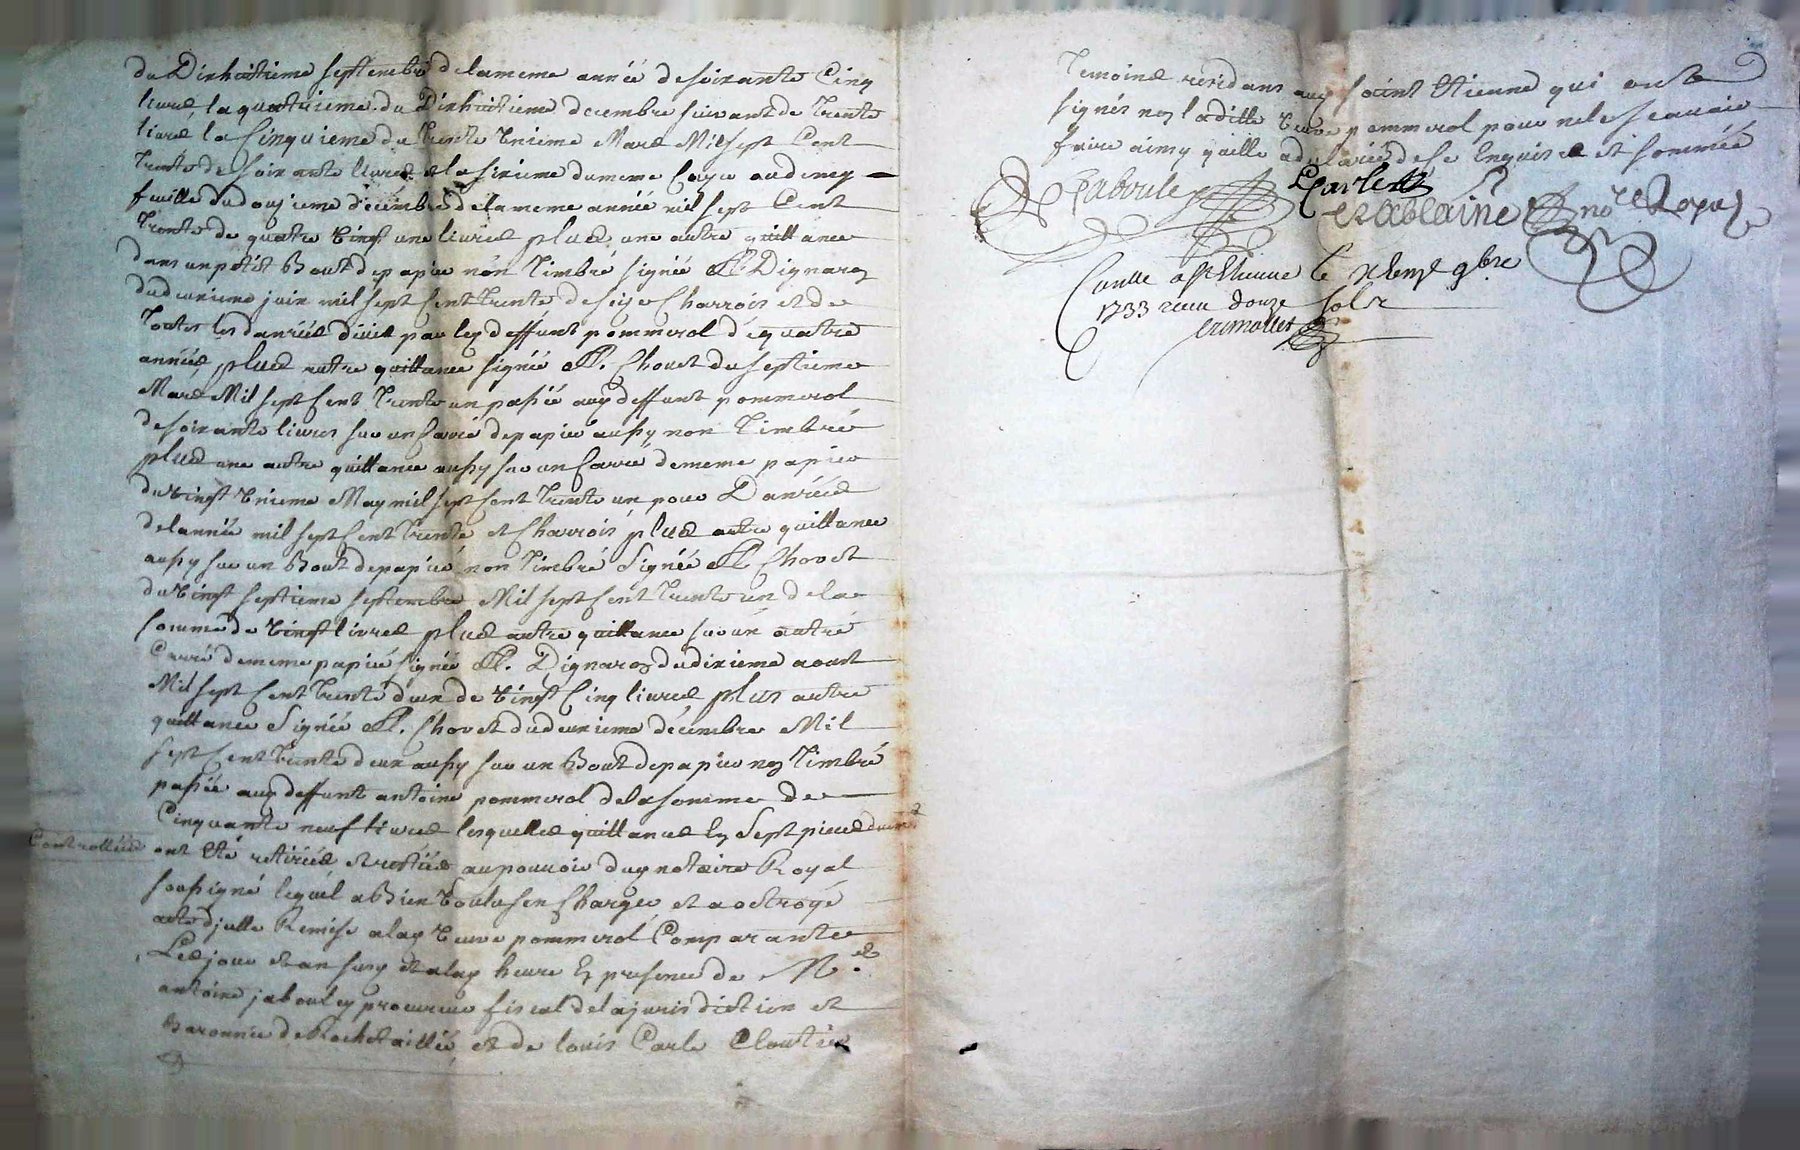 du Dixhuitieme septembre de la meme année de soixante Cinq
livres, la quatrieme du Dixhuitieme decembre suivant de trente
livres la Cinquieme du trente unieme Mars Mil sept Cent
trente de soixante livres et la sixieme du meme
feuille du douzieme décembre de la meme année mil sept Cent
trente de quatre vingt une livres plus une autre quittance
dans un petit Bout de papier non timbré signée Dignaron
du deuxieme juin mil sept Cent trente de seize Charrois et de
toutes les danrées dües par led deffunt pommerol d'en quatre
années, plus autre quittance signée Chovet du septieme
Mars Mil sept Cent trente un passée aud deffunt pommerol
de soixante livres sur un Carré de papier aussy non timbré
plus une autre quittance aussy sur un Carré de meme papier
du vingt unieme May mil sept Cent trente un pour Danrées
de l'année mil sept Cent trente et Charrois, plus autre quittance
aussy sur un Bout de papier non timbré Signée Chovet
du vingt septieme septembre Mil sept Cent trente un de la
somme de vingt livres plus autre quittance sur un autre
Carré de meme papier signée Dignaron du dixieme aoust
Mil sept Cent trente deux de vingt Cinq livres plus autre
quittance Signée Chovet du deuxieme décembre Mil
sept Cent trente deux aussy sur un Bout de papier non timbré
passée aud deffunt antoine pommerol de la somme de
Cinquante neuf livres lesquelles quittances En Sept pieces
Controllées
ont Eté retirées et restées au pouvoir dud notaire Royal
soussigné lequel a Bien voulu s'en Charger et a octroyé
acte d'jcelle Remise a lad veuve pommerol Comparante
Les jour et an susd et a lad heure En presence de Mr.
antoine jabouley procureur fiscal de la jurisdiction et
Baronnie de Rochetaillée et de louis Carle Cloutier
temoins residans aud saint Etienne qui ont
signés non laditte veuve pommerol pour ne le scavoir
faire ainsy qu'elle a declaré de ce Enquise et sommée
Jabouley Carle
Erablaine no.re Royal
Conlle a St Etienne le 9bre
1733 recu douze sols